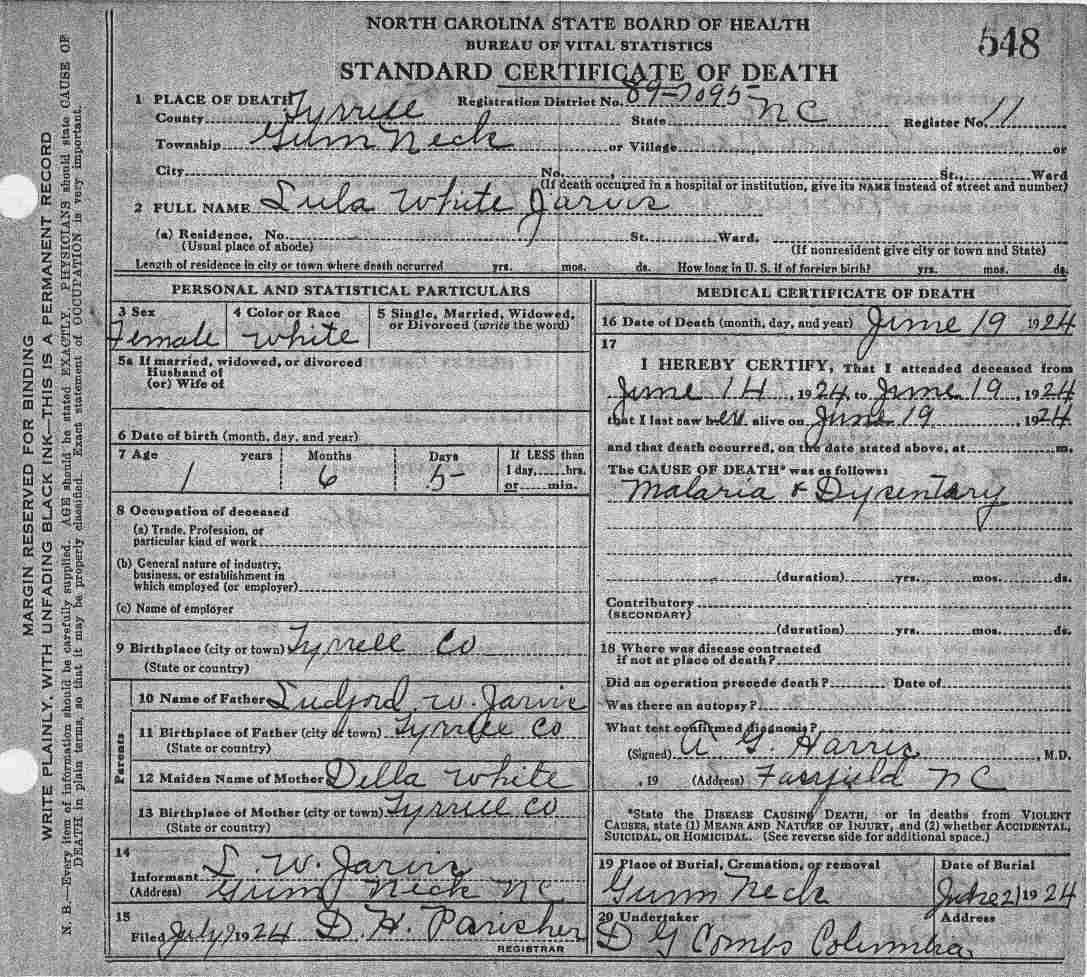 NORTH CAROLINA STATE BOARD OF HEALTH
BUREAU OF VITAL STATISTICS
STANDARD CERTIFICATE OF DEATH
548
MARGIN RESERVED FOR BINDING
WRITE PLAINLY, WITH UNFADING BLACK INK—THIS IS A PERMANENT RECORD
N. B.—Every item of information should be carefully supplied. AGE should be stated EXACTLY. PHYSICIANS should state CAUSE OF
DEATH in plain terms, so that it may be properly classified. Exact statement of OCCUPATION is very important.
1 PLACE OF DEATH Registration District No. 89-7095
County Tyrrell State NC Register No. 11
Township Gum Neck or Village or
City No. St., Ward
(If death occurred in a hospital or institution, give its NAME instead of street and number)
2 FULL NAME Lula White Jarvis
(a) Residence, No. St. Ward.
(Usual place of abode) (If nonresident give city or town and State)
Length of residence in city or town where death occurred yrs. mos. ds. How long in U. S. if of foreign birth? yrs. mos. ds.
PERSONAL AND STATISTICAL PARTICULARS
3 Sex 4 Color or Race 5 Single, Married, Widowed,
or Divorced (write the word)
Female White
5a If married, widowed, or divorced
Husband of
(or) Wife of
6 Date of birth (month, day, and year)
7 Age years Months Days If LESS than
1 day, hrs.
1 6 5
or min.
8 Occupation of deceased
(a) Trade, Profession, or
particular kind of work
(b) General nature of industry,
business, or establishment in
which employed (or employer)
(c) Name of employer
9 Birthplace (city or town) Tyrrell Co
(State or country)
Parents
10 Name of Father Ludford W. Jarvis
11 Birthplace of Father (city or town) Tyrrell Co
(State or country)
12 Maiden Name of Mother Della White
13 Birthplace of Mother (city or town) Tyrrell Co
(State or country)
14
Informant L. W. Jarvis
(Address) Gum Neck NC
15
Filed July 9 1924 D. H. Parisher
REGISTRAR
MEDICAL CERTIFICATE OF DEATH
16 Date of Death (month, day, and year) June 19 1924
17
I HEREBY CERTIFY, That I attended deceased from
June 14, 1924, to June 19, 1924
that I last saw her alive on June 19 1924
and that death occurred, on the date stated above, at m.
The CAUSE OF DEATH* was as follows:
Malaria & Dysentary
(duration) yrs. mos. ds.
Contributory
(SECONDARY)
(duration) yrs. mos. ds.
18 Where was disease contracted
if not at place of death?
Did an operation precede death? Date of
Was there an autopsy?
What test confirmed diagnosis?
(Signed) A G. Harris, M.D.
, 19 (Address) Fairfield NC
*State the DISEASE CAUSING DEATH, or in deaths from VIOLENT
CAUSES, state (1) MEANS AND NATURE OF INJURY, and (2) whether ACCIDENTAL,
SUICIDAL, OR HOMICIDAL. (See reverse side for additional space.)
19 Place of Burial, Cremation, or removal Date of Burial
Gum Neck June 21 1924
20 Undertaker Address
D G Combs Columbia